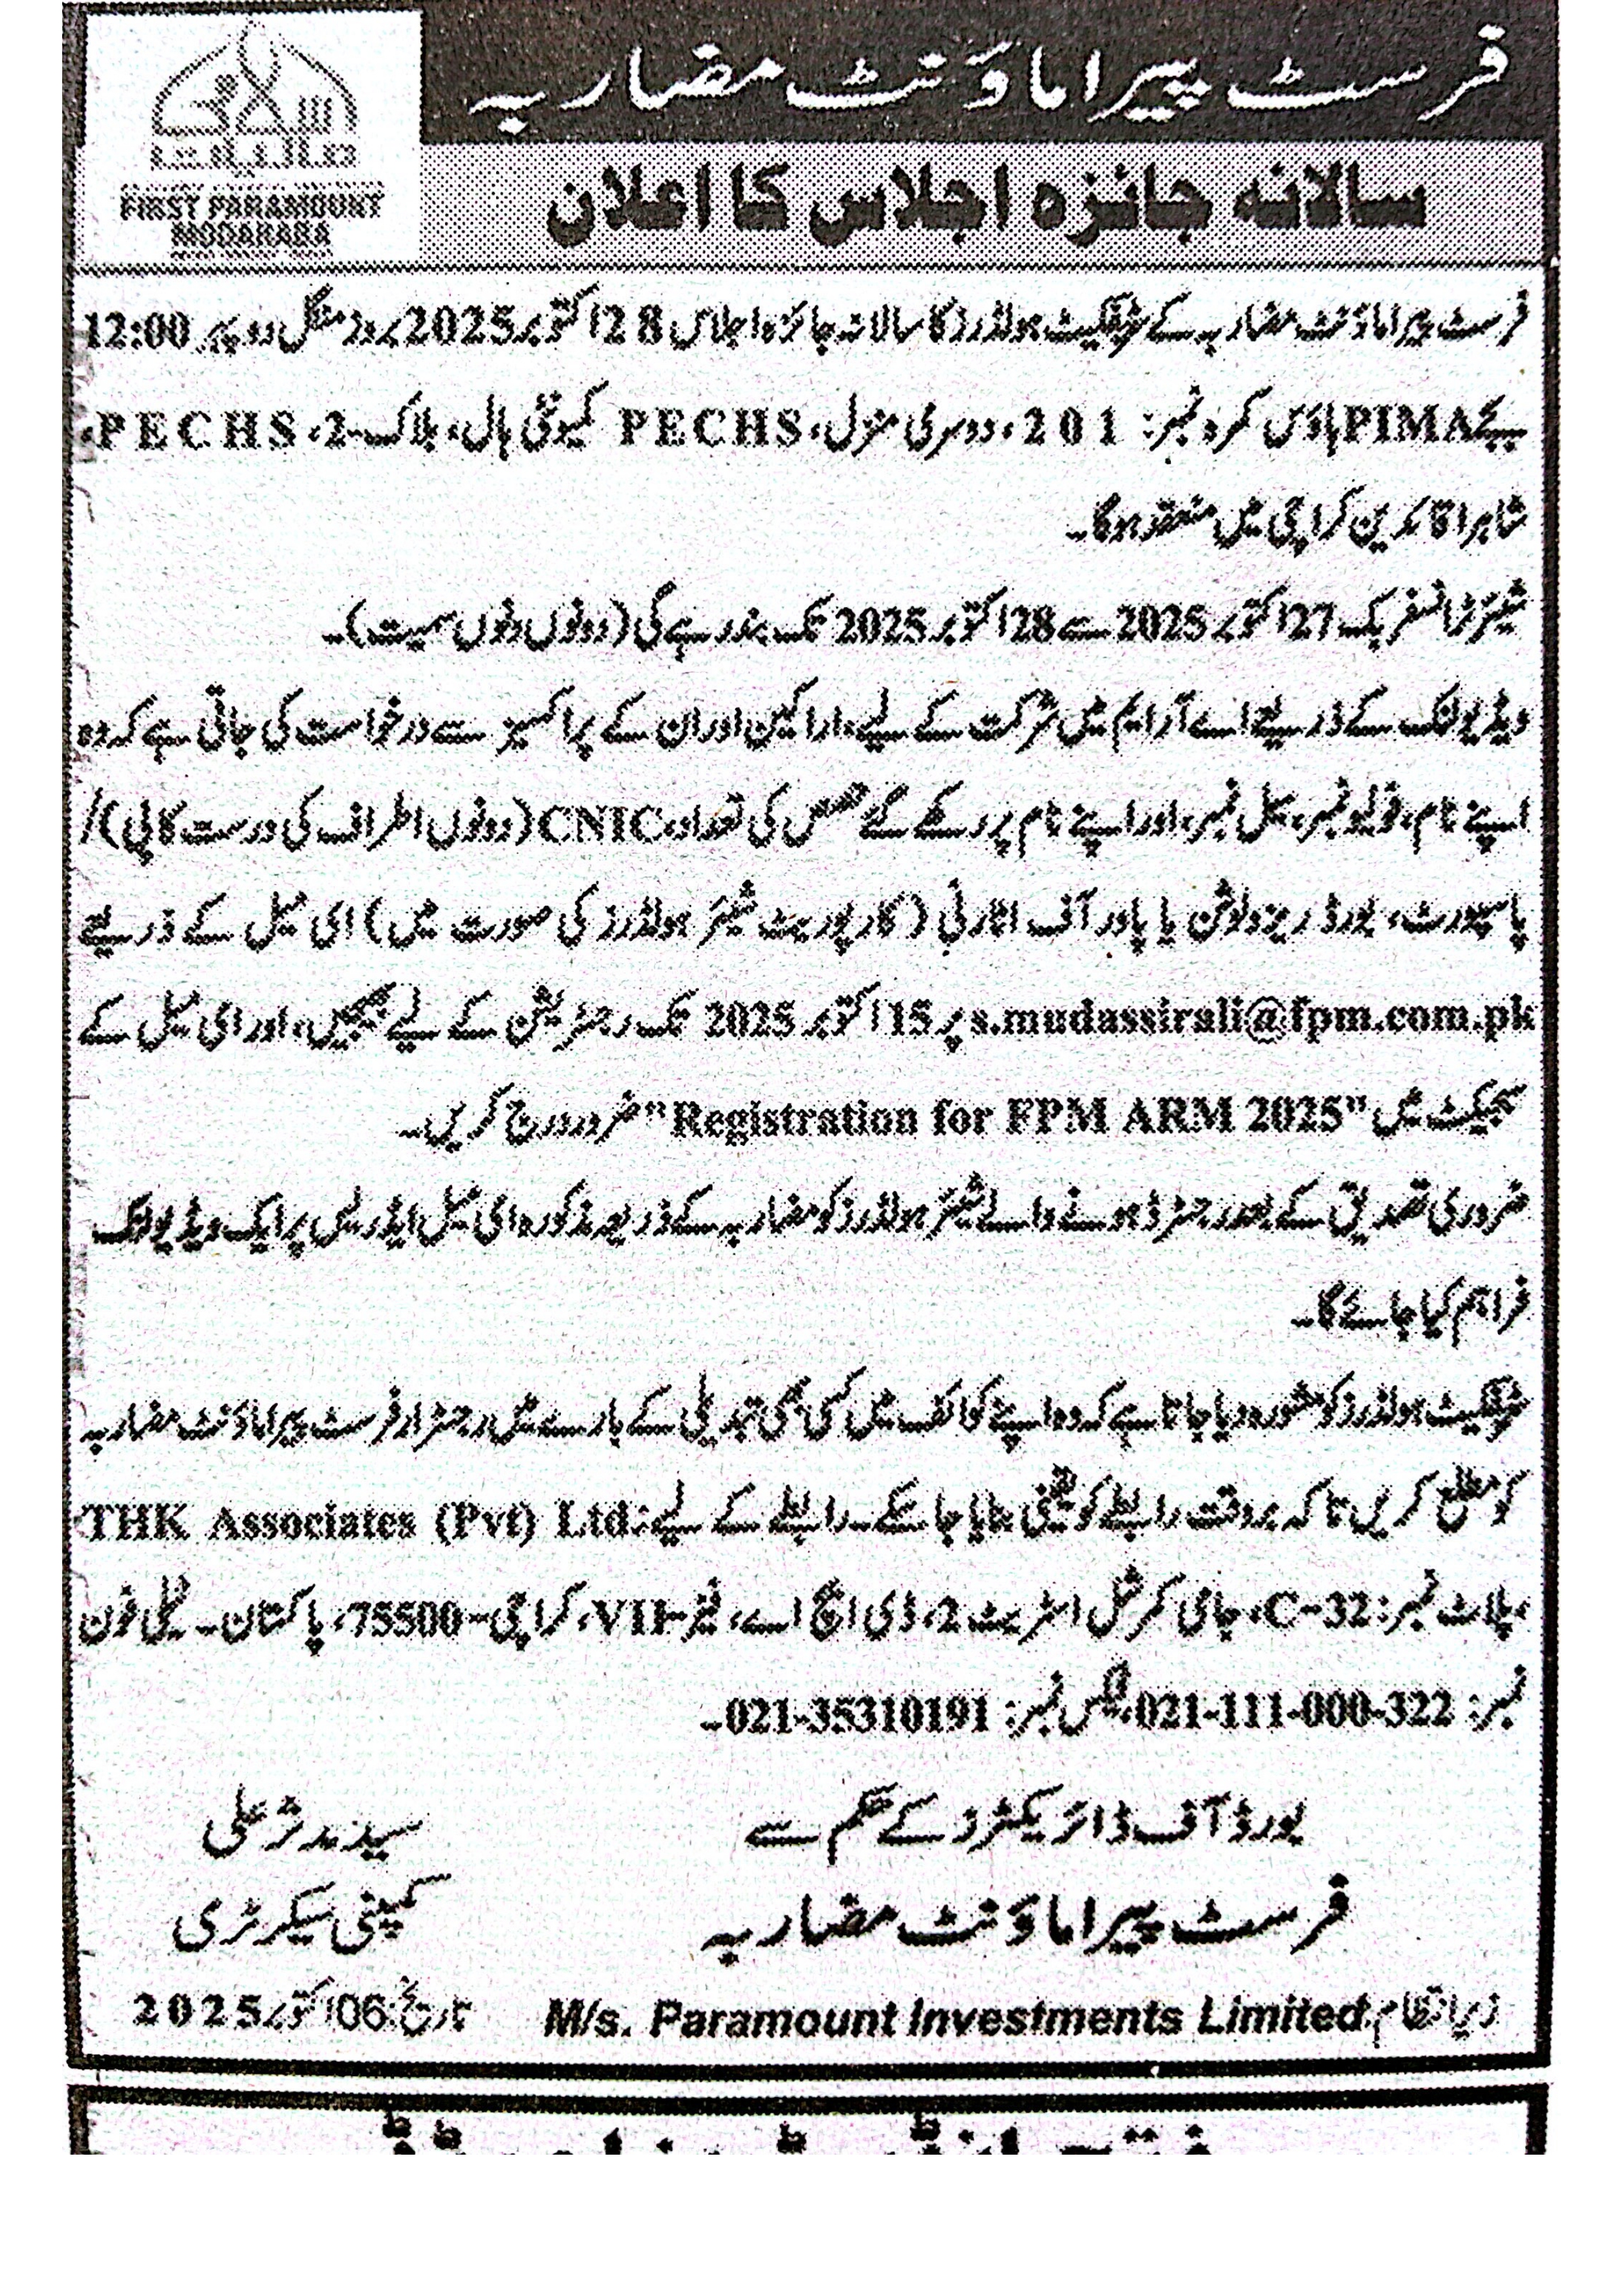 FIRST PARAMOUNT
MODARABA
فرسٹ پیراماؤنٹ مضاربہ
سالانہ جائزہ اجلاس کا اعلان
فرسٹ پیراماؤنٹ مضاربہ کے سرٹیفکیٹ ہولڈرز کا سالانہ جائزہ اجلاس 28 اکتوبر 2025 بروز منگل دوپہر 12:00
بجے PIMA ہاؤس کمرہ نمبر: 201، دوسری منزل، PECHS کمیونٹی ہال، بلاک-2، PECHS،
شاہراہ قائدین کراچی میں منعقد ہوگا۔
شیئرز ٹرانسفر بک 27 اکتوبر 2025 سے 28 اکتوبر 2025 تک بند رہے گی (دونوں دنوں سمیت)۔
ویڈیو لنک کے ذریعے اے آر ایم میں شرکت کے لیے، اراکین اور ان کے پراکسیز سے درخواست کی جاتی ہے کہ وہ
اپنے نام، فولیو نمبر، سیل نمبر، اور اپنے نام پر رکھے گئے حصص کی تعداد، CNIC (دونوں اطراف کی درست کاپی)/
پاسپورٹ، بورڈ ریزولوشن یا پاور آف اٹارنی (کارپوریٹ شیئر ہولڈرز کی صورت میں) ای میل کے ذریعے
s.mudassirali@fpm.com.pk پر 15 اکتوبر 2025 تک رجسٹریشن کے لیے بھیجیں، اور ای میل کے
سبجیکٹ میں "Registration for FPM ARM 2025" ضرور درج کریں۔
ضروری تصدیق کے بعد رجسٹرڈ ہونے والے شیئر ہولڈرز کو مضاربہ کے ذریعہ مذکورہ ای میل ایڈریس پر ایک ویڈیو لنک
فراہم کیا جائے گا۔
سرٹیفکیٹ ہولڈرز کو مشورہ دیا جاتا ہے کہ وہ اپنے کوائف میں کسی بھی تبدیلی کے بارے میں رجسٹرار فرسٹ پیراماؤنٹ مضاربہ
کو مطلع کریں تاکہ بروقت رابطے کو یقینی بنایا جا سکے۔ رابطے کے لیے: THK Associates (Pvt) Ltd.
پلاٹ نمبر: C-32، جامی کمرشل اسٹریٹ 2، ڈی ایچ اے، فیز-VII، کراچی-75500، پاکستان۔ ٹیلی فون
نمبر: 021-111-000-322، فیکس نمبر: 021-35310191۔
بورڈ آف ڈائریکٹرز کے حکم سے
سید مدثر علی
فرسٹ پیراماؤنٹ مضاربہ
کمپنی سیکریٹری
زیر انتظام M/s. Paramount Investments Limited
تاریخ: 06 اکتوبر 2025